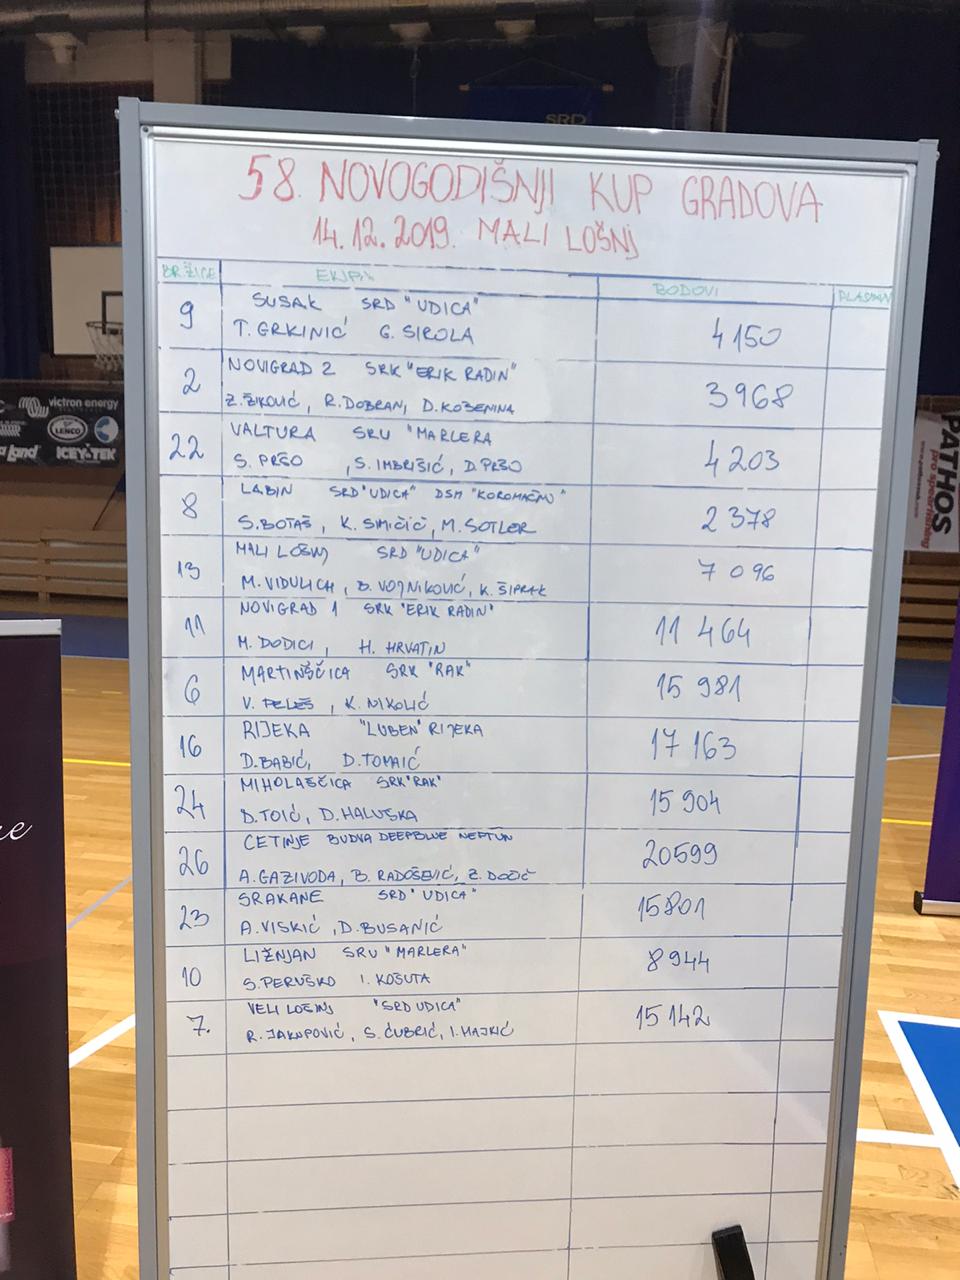 SRD
58. NOVOGODIŠNJI KUP GRADOVA
14.12.2019. MALI LOŠNJ
EKIPA BODOVI PLASMAN
9 SUSAK SRD "UDICA" 4 150
T. GRKINIĆ G. SIROLA
2 NOVIGRAD 2 SRK "ERIK RADIN" 3968
Z. ŽIKOVIĆ, R. DOBRAN, D. KOŽENINA
22 VALTURA SRU "MARLERA 4 203
S. PRŠO , S. IMBRIŠIĆ, D. PRŠO
8 LABIN SRD "UDICA" DSM "KOROMAČNO" 2 378
S. BOTAŠ, K. SMIČIĆ, M. SOTLER
13 MALI LOŠNJ SRD "UDICA" 7 096
M. VIDULICH, B. VOJNIKOVIĆ, K. ŠIPRAK
11 NOVIGRAD 1 SRK "ERIK RADIN" 11 464
M. DODICI, H. HRVATIN
6 MARTINŠČICA SRK "RAK" 15 981
V. PELEŠ, K. NIKOLIĆ
16 RIJEKA "LUBEN" RIJEKA 17 163
D. BABIĆ, D. TOMAIĆ
24 MIHOLAŠČICA SRK "RAK" 15 904
D. TOIĆ, D. HALUSKA
26 CETINJE BUDVA DEEPBLUE NEPTUN 20599
A. GAZIVODA, B. RADOŠEVIĆ, Z.
23 SRAKANE SRD "UDICA" 15801
A. VISKIĆ, D. BUSANIĆ
10 LIŽNJAN SRU "MARLERA" 8 944
S. PERUŠKO I. KOŠUTA
7. VELI LOŠINJ "SRD UDICA" 15 142
R. JAKUPOVIĆ, S. ĆUBRIĆ, I. MAJKIĆ
victron energy
LENCO
Land ICEY-TEK
PATHOS
pro spearfishing